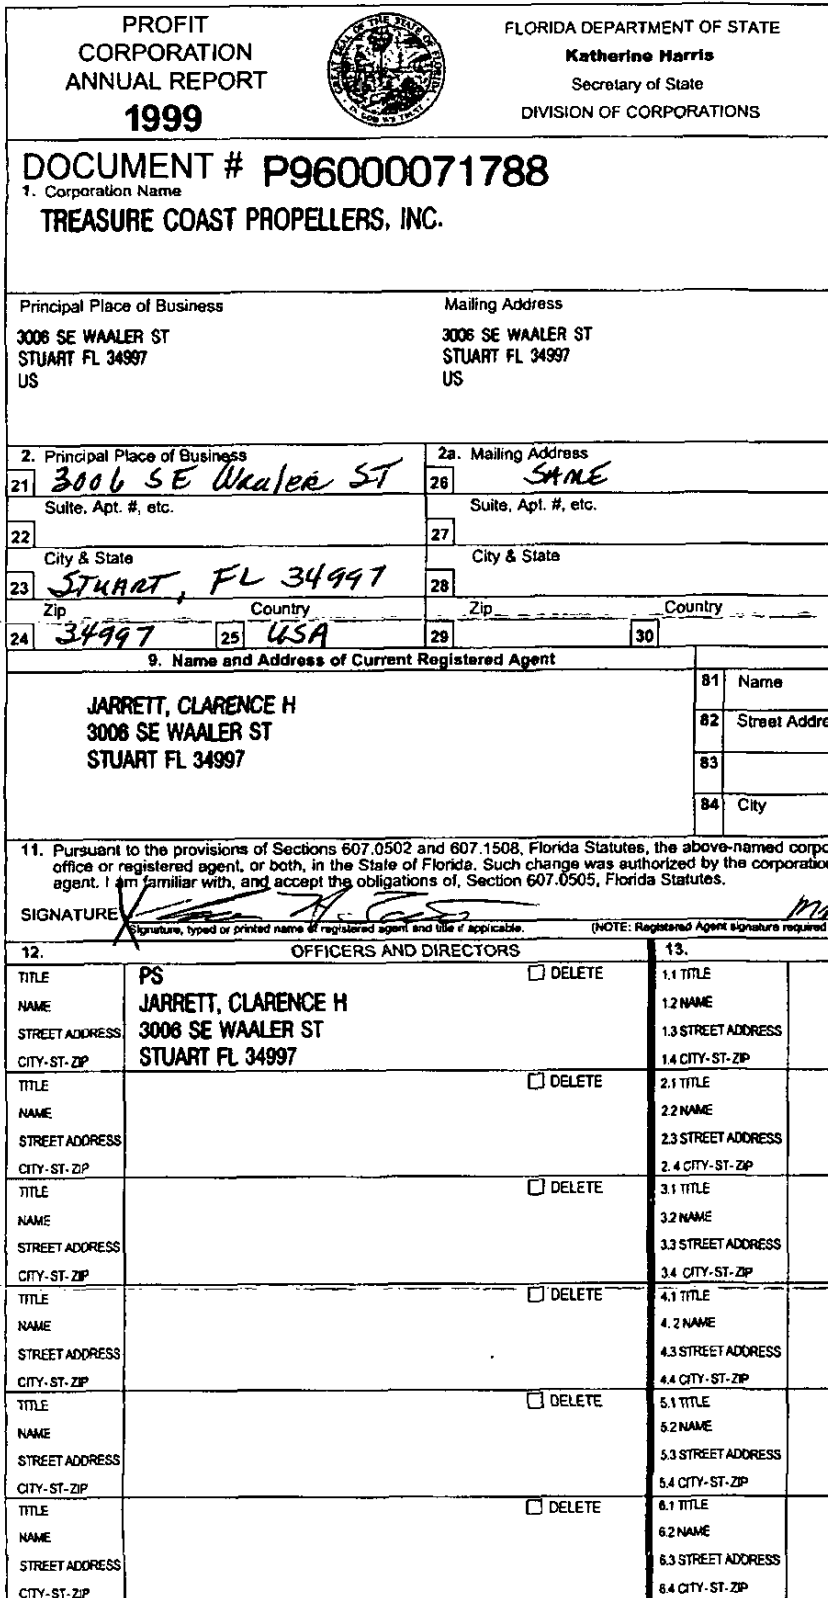 PROFIT
CORPORATION
ANNUAL REPORT
1999
GREAT SEAL OF THE STATE OF FLORIDA
IN GOD WE TRUST
FLORIDA DEPARTMENT OF STATE
Katherine Harris
Secretary of State
DIVISION OF CORPORATIONS
DOCUMENT # P96000071788
1. Corporation Name
TREASURE COAST PROPELLERS, INC.
Principal Place of Business
3006 SE WAALER ST
STUART FL 34997
US
Mailing Address
3006 SE WAALER ST
STUART FL 34997
US
2. Principal Place of Business
21 3006 SE Waaler ST
2a. Mailing Address
26 SAME
Suite, Apt. #, etc.
22
Suite, Apt. #, etc.
27
City & State
23 STUART, FL 34997
City & State
28
Zip
24 34997
Country
25 USA
Zip
29
Country
30
9. Name and Address of Current Registered Agent
JARRETT, CLARENCE H
3006 SE WAALER ST
STUART FL 34997
81 Name
82 Street Addre
83
84 City
11. Pursuant to the provisions of Sections 607.0502 and 607.1508, Florida Statutes, the above-named corpo
office or registered agent, or both, in the State of Florida. Such change was authorized by the corporatio
agent. I am familiar with, and accept the obligations of, Section 607.0505, Florida Statutes.
SIGNATURE X
Signature, typed or printed name of registered agent and title if applicable.
(NOTE: Registered Agent signature required
12. OFFICERS AND DIRECTORS
13.
TITLE PS DELETE
NAME JARRETT, CLARENCE H
STREET ADDRESS 3006 SE WAALER ST
CITY-ST-ZIP STUART FL 34997
1.1 TITLE
1.2 NAME
1.3 STREET ADDRESS
1.4 CITY-ST-ZIP
TITLE DELETE
NAME
STREET ADDRESS
CITY-ST-ZIP
2.1 TITLE
2.2 NAME
2.3 STREET ADDRESS
2.4 CITY-ST-ZIP
TITLE DELETE
NAME
STREET ADDRESS
CITY-ST-ZIP
3.1 TITLE
3.2 NAME
3.3 STREET ADDRESS
3.4 CITY-ST-ZIP
TITLE DELETE
NAME
STREET ADDRESS
CITY-ST-ZIP
4.1 TITLE
4.2 NAME
4.3 STREET ADDRESS
4.4 CITY-ST-ZIP
TITLE DELETE
NAME
STREET ADDRESS
CITY-ST-ZIP
5.1 TITLE
5.2 NAME
5.3 STREET ADDRESS
5.4 CITY-ST-ZIP
TITLE DELETE
NAME
STREET ADDRESS
CITY-ST-ZIP
6.1 TITLE
6.2 NAME
6.3 STREET ADDRESS
6.4 CITY-ST-ZIP